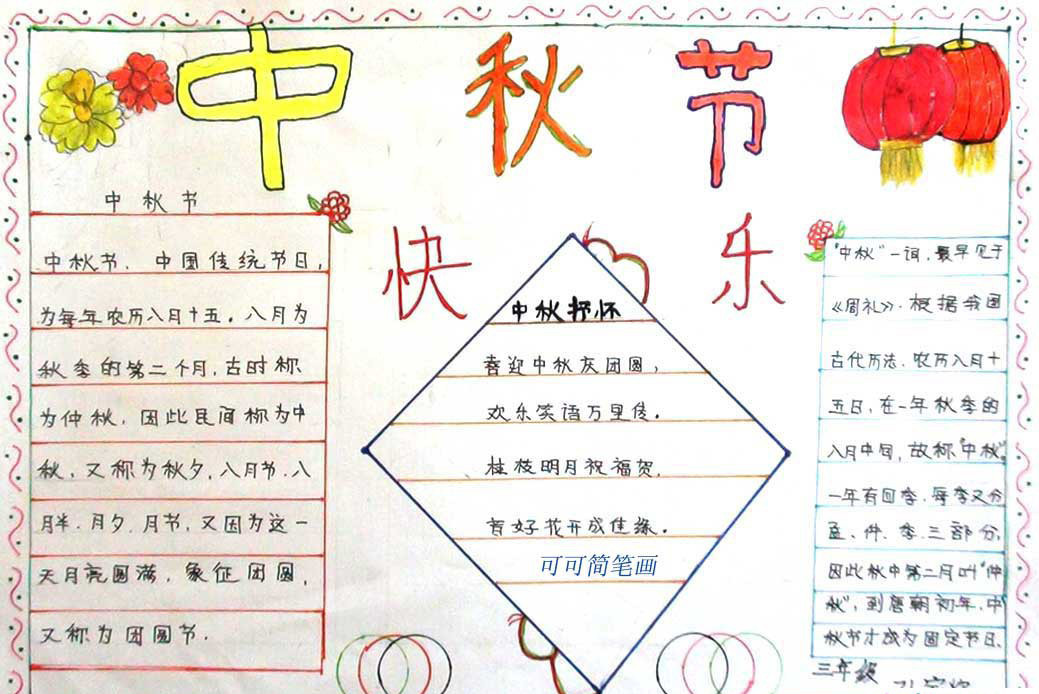 中秋节
快乐
中秋节
中秋节，中国传统节日，
为每年农历八月十五。八月为
秋季的第二个月，古时称
为仲秋，因此民间称为中
秋，又称为秋夕，八月节.八
月半.月夕.月节，又因为这一
天月亮圆满，象征团圆，
又称为团圆节.
中秋抒怀
喜迎中秋庆团圆，
欢乐笑语万里传。
桂枝明月祝福贺，
育好花开成佳缘。
可可简笔画
"中秋"一词，最早见于
《周礼》.根据我国
古代历法，农历八月十
五日，在一年秋季的
八月中旬，故称"中秋"。
一年有四季，每季又分
孟、仲、季三部分，
因此秋中第二月叫"仲
秋"，到唐朝初年，中
秋节才成为固定节日.
三年级